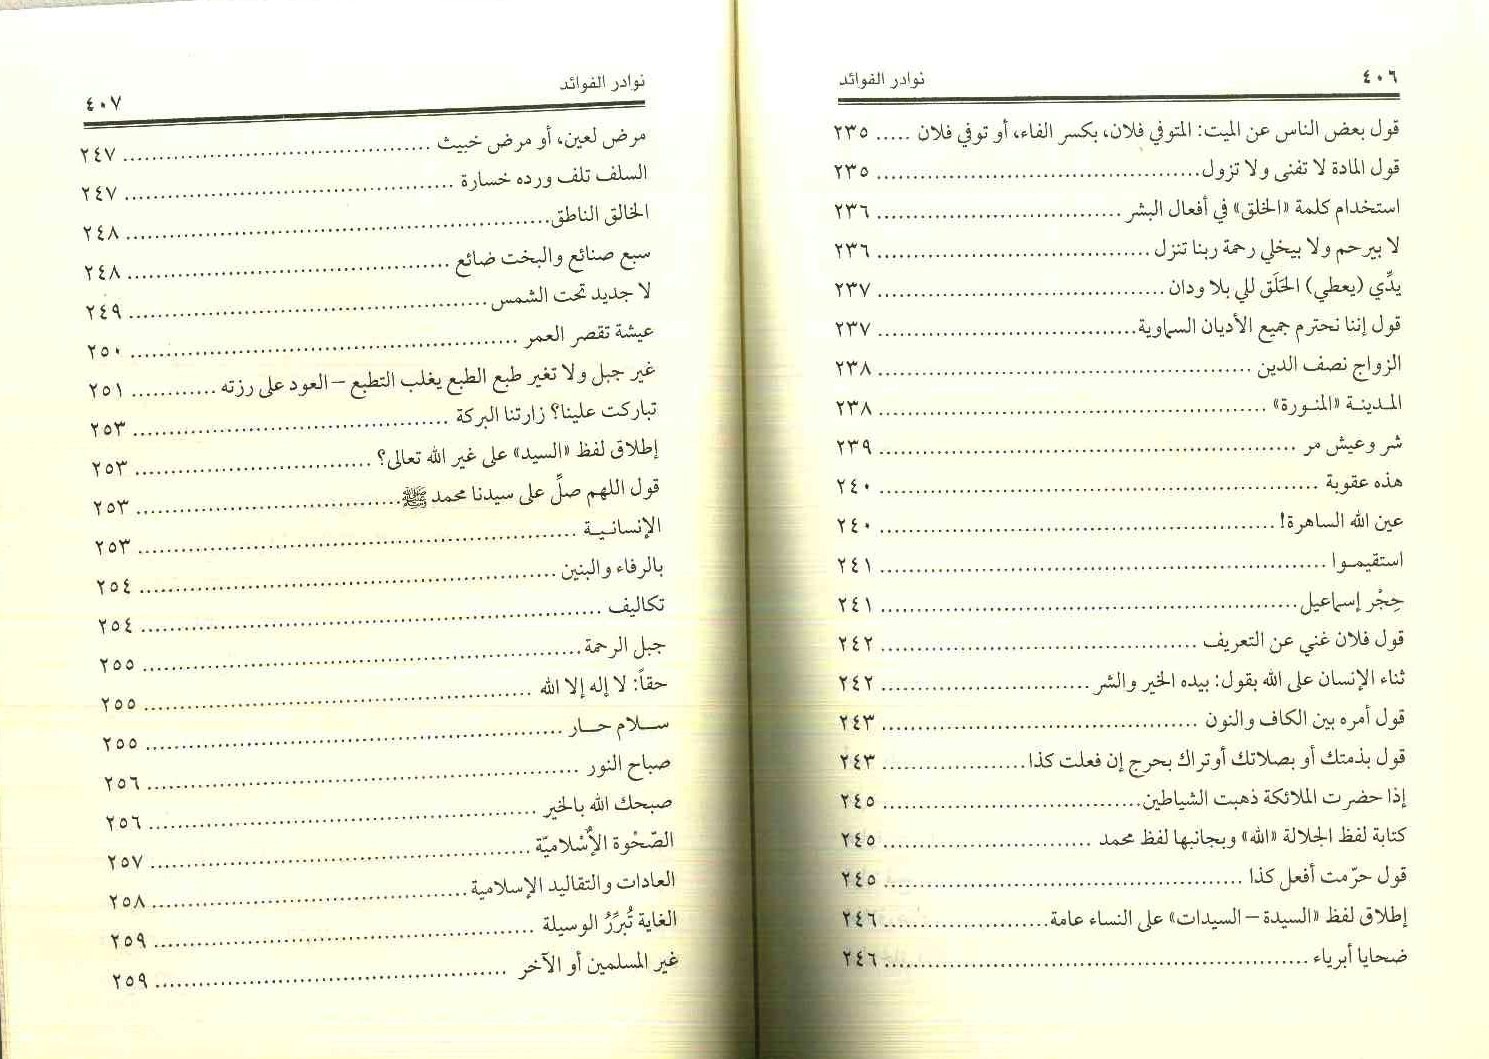 ٤٠٦ نوادر الفوائد
قول بعض الناس عن الميت: المتوفي فلان، بكسر الفاء، أو توفي فلان ..... ٢٣٥
قول المادة لا تفنى ولا تزول ..... ٢٣٥
استخدام كلمة «الخلق» في أفعال البشر ..... ٢٣٦
لا بيرحم ولا بيخلي رحمة ربنا تنزل ..... ٢٣٦
يدِّي (يعطي) الحَلَق للي بلا ودان ..... ٢٣٧
قول إننا نحترم جميع الأديان السماوية ..... ٢٣٧
الزواج نصف الدين ..... ٢٣٨
المدينة «المنورة» ..... ٢٣٨
شر وعيش مر ..... ٢٣٩
هذه عقوبة ..... ٢٤٠
عين الله الساهرة! ..... ٢٤٠
استقيموا ..... ٢٤١
حِجْر إسماعيل ..... ٢٤١
قول فلان غني عن التعريف ..... ٢٤٢
ثناء الإنسان على الله بقول: بيده الخير والشر ..... ٢٤٢
قول أمره بين الكاف والنون ..... ٢٤٣
قول بذمتك أو بصلاتك أو تراك بحرج إن فعلت كذا ..... ٢٤٣
إذا حضرت الملائكة ذهبت الشياطين ..... ٢٤٥
كتابة لفظ الجلالة «الله» وبجانبها لفظ محمد ..... ٢٤٥
قول حرّمت أفعل كذا ..... ٢٤٥
إطلاق لفظ «السيدة – السيدات» على النساء عامة ..... ٢٤٦
ضحايا أبرياء ..... ٢٤٦
نوادر الفوائد ٤٠٧
مرض لعين، أو مرض خبيث ..... ٢٤٧
السلف تلف ورده خسارة ..... ٢٤٧
الخالق الناطق ..... ٢٤٨
سبع صنائع والبخت ضائع ..... ٢٤٨
لا جديد تحت الشمس ..... ٢٤٩
عيشة تقصر العمر ..... ٢٥٠
غير جبل ولا تغير طبع الطبع يغلب التطبع – العود على رزته ..... ٢٥١
تباركت علينا؟ زارتنا البركة ..... ٢٥٣
إطلاق لفظ «السيد» على غير الله تعالى؟ ..... ٢٥٣
قول اللهم صلِّ على سيدنا محمد ﷺ ..... ٢٥٣
الإنسانية ..... ٢٥٣
بالرفاء والبنين ..... ٢٥٤
تكاليف ..... ٢٥٤
جبل الرحمة ..... ٢٥٥
حقاً: لا إله إلا الله ..... ٢٥٥
سلام حار ..... ٢٥٥
صباح النور ..... ٢٥٦
صبحك الله بالخير ..... ٢٥٦
الصّحْوة الإُسْلاميّة ..... ٢٥٧
العادات والتقاليد الإسلامية ..... ٢٥٨
الغاية تُبرِّرُ الوسيلة ..... ٢٥٩
غير المسلمين أو الآخر ..... ٢٥٩